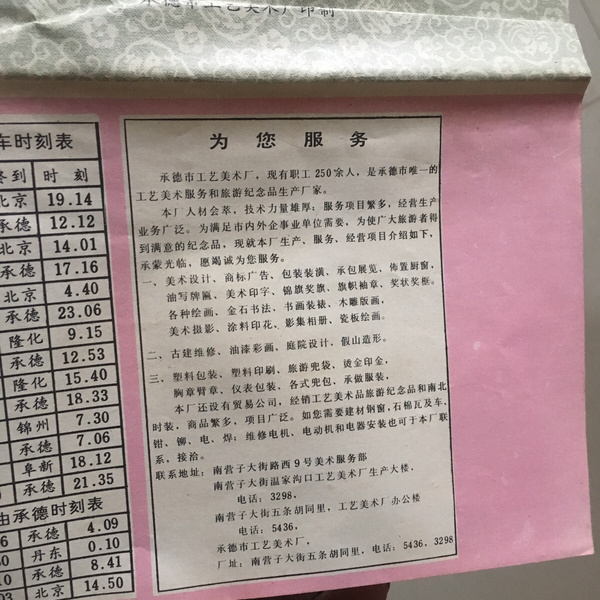 承德市工艺美术厂印制
车时刻表
签到 时刻
北京 19.14
承德 12.12
北京 14.01
承德 17.16
北京 4.40
承德 23.06
隆化 9.15
承德 12.53
隆化 15.40
承德 18.33
锦州 7.30
承德 7.06
阜新 18.12
承德 21.35
由承德时刻表
承德 4.09
丹东 0.10
承德 8.41
北京 14.50
为您服务
承德市工艺美术厂，现有职工250余人，是承德市唯一的
工艺美术服务和旅游纪念品生产厂家。
本厂人材会萃，技术力量雄厚；服务项目繁多，经营生产
业务广泛。为满足市内外企事业单位需要，为使广大旅游者得
到满意的纪念品，现就本厂生产、服务、经营项目介绍如下，
承蒙光临，愿竭诚为您服务。
一、美术设计、商标广告、包装装潢、承包展览、佈置厨窗，
油写牌匾、美术印字、锦旗奖旗、旗帜袖章、奖状奖框。
各种绘画、金石书法、书画装裱、木雕版画，
美术摄影、涂料印花、影集相册、瓷板绘画。
二、古建维修、油漆彩画、庭院设计、假山造形。
三、塑料包装、塑料印刷、旅游兜袋、烫金印金，
胸章臂章、仪表包装、各式兜包、承做服装，
本厂还设有贸易公司，经销工艺美术品旅游纪念品和南北
时装，商品繁多，项目广泛。如您需要建材钢窗，石棉瓦及车、
钳、铆、电、焊；维修电机、电动机和电器安装也可于本厂联
系，接洽。
联系地址：南营子大街路西9号美术服务部
南营子大街温家沟口工艺美术厂生产大楼，
电话：3298，
南营子大街五条胡同里，工艺美术厂办公楼
电话：5436，
承德市工艺美术厂，
厂址：南营子大街五条胡同里，电话：5436，3298